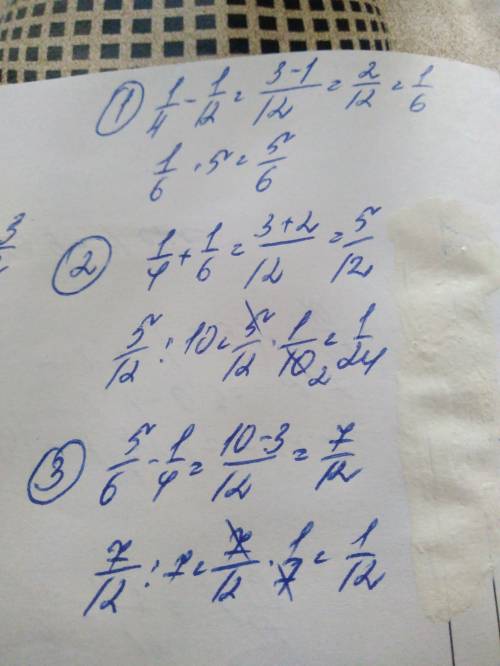 1) 1/4 - 1/12 = 3-1/12 = 2/12 = 1/6
1/6 · 5 = 5/6
2) 1/4 + 1/6 = 3+2/12 = 5/12
5/12 : 10 = 5/12 · 1/10 2 = 1/24
3) 5/6 - 1/4 = 10-3/12 = 7/12
7/12 : 7 = 7/12 · 1/7 = 1/12